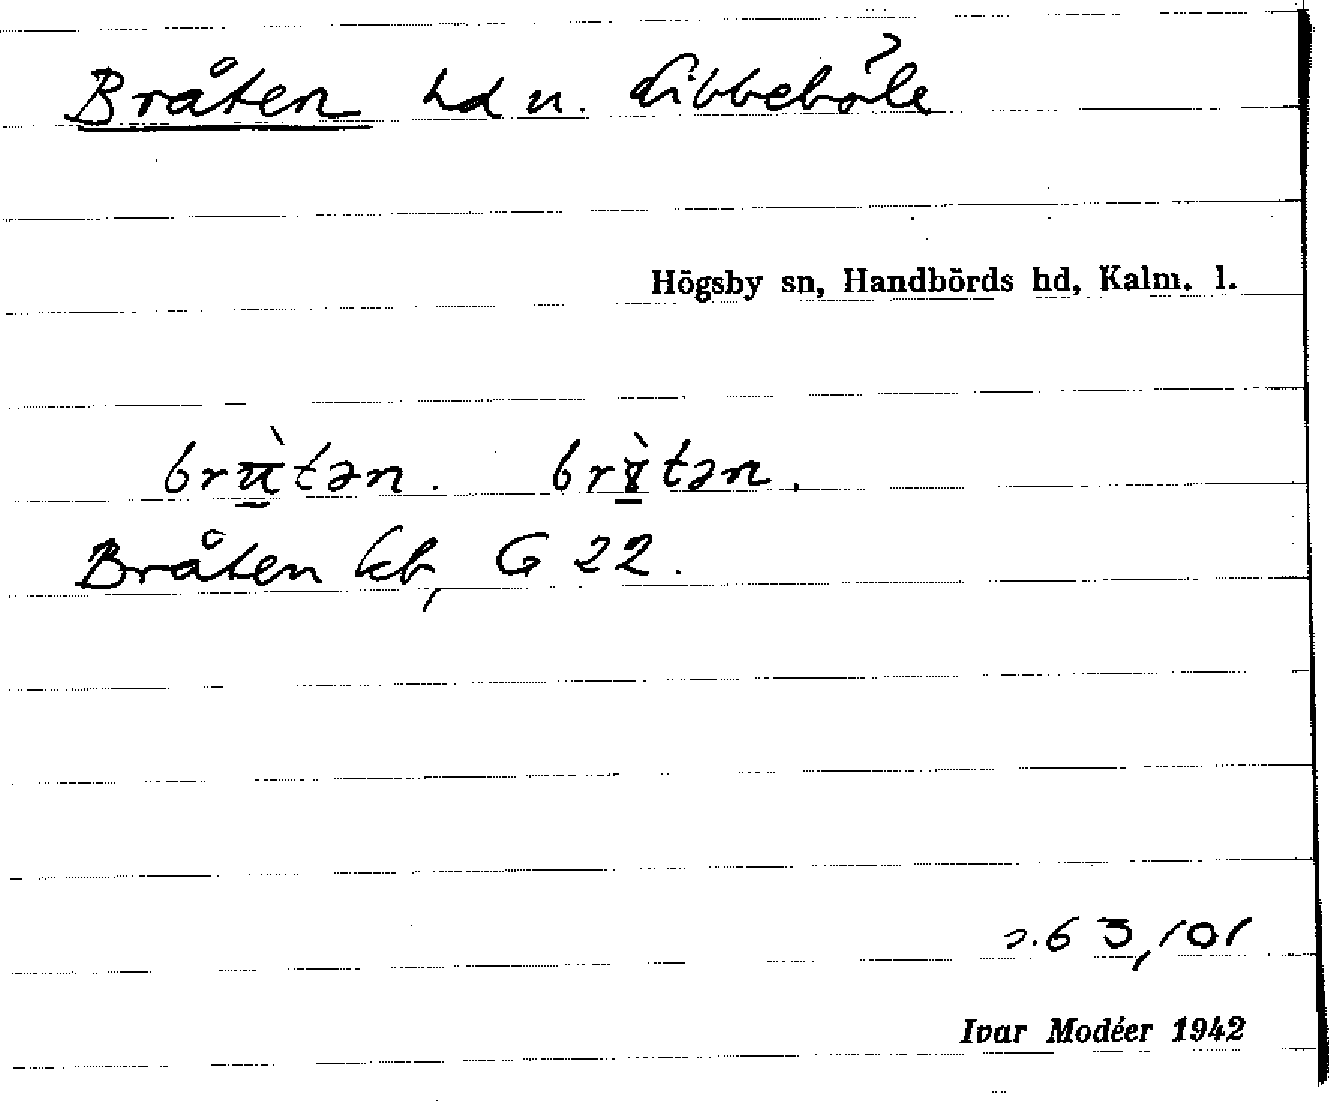 Bråten hd u. Libbehåle
Högsby sn, Handbörds hd, Kalm. l.
brätən. brɤ̀tən.
Bråten kb, G 22.
s. 63, 101
Ivar Modéer 1942